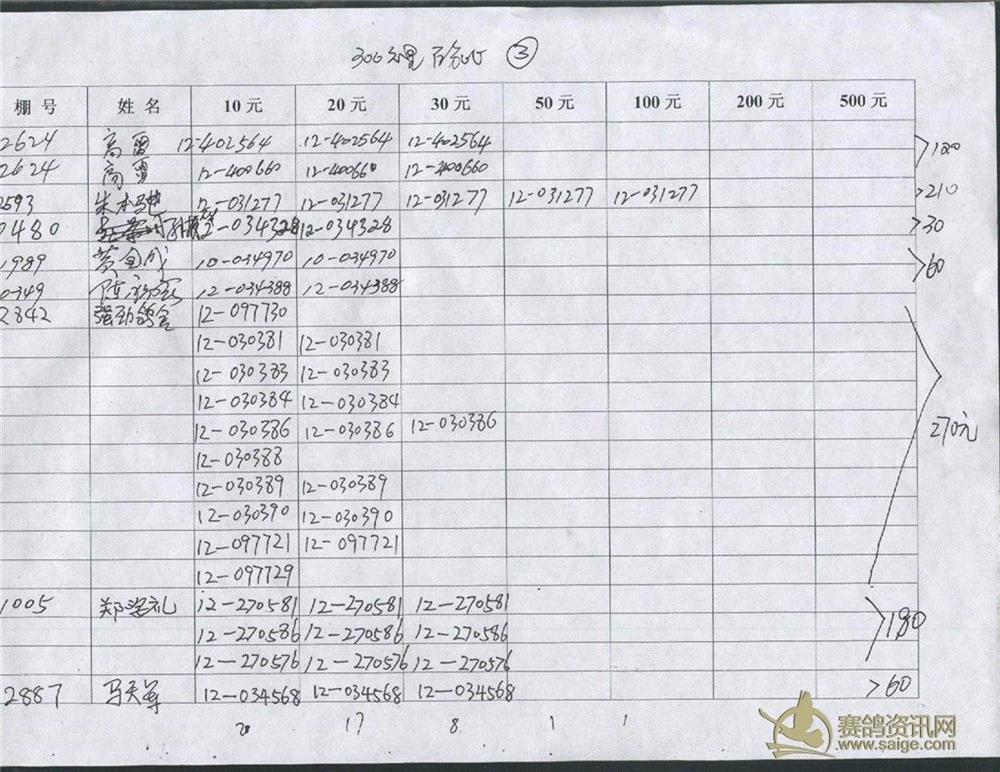 300公里 ③
棚号 姓名 10元 20元 30元 50元 100元 200元 500元
2624 高雷 12-402564 12-402564 12-402564
2624 高雷 12-400660 12-400660 12-400660 >120
2593 朱本 12-031277 12-031277 12-031277 12-031277 12-031277 >210
0480 12-034328 12-034328 >30
1989 黄金成 10-034970 10-034970 >60
0349 陈 12-034388 12-034388
2842 强劲鸽舍 12-097730
12-030381 12-030381
12-030383 12-030383
12-030384 12-030384
12-030386 12-030386 12-030386 270元
12-030388
12-030389 12-030389
12-030390 12-030390
12-097721 12-097721
12-097729
1005 郑学礼 12-270581 12-270581 12-270581
12-270586 12-270586 12-270586 >180
12-270576 12-270576 12-270576
2887 马天军 12-034568 12-034568 12-034568 >60
20 17 8 1 1
赛鸽资讯网
www.saige.com